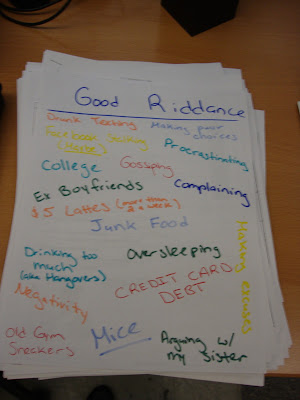 Good Riddance
Drunk Texting
Making poor
choices
Facebook Stalking
(Maybe)
Procrastinating
College
Gossping
Ex Boyfriends
Complaining
$5 Lattes (more than
2 x week)
Junk Food
Drinking too
much
(aka Hangovers)
Oversleeping
Making excuses
Negativity
CREDIT CARD
DEBT
Old Gym
Sneakers
Mice
Arguing w/
my sister